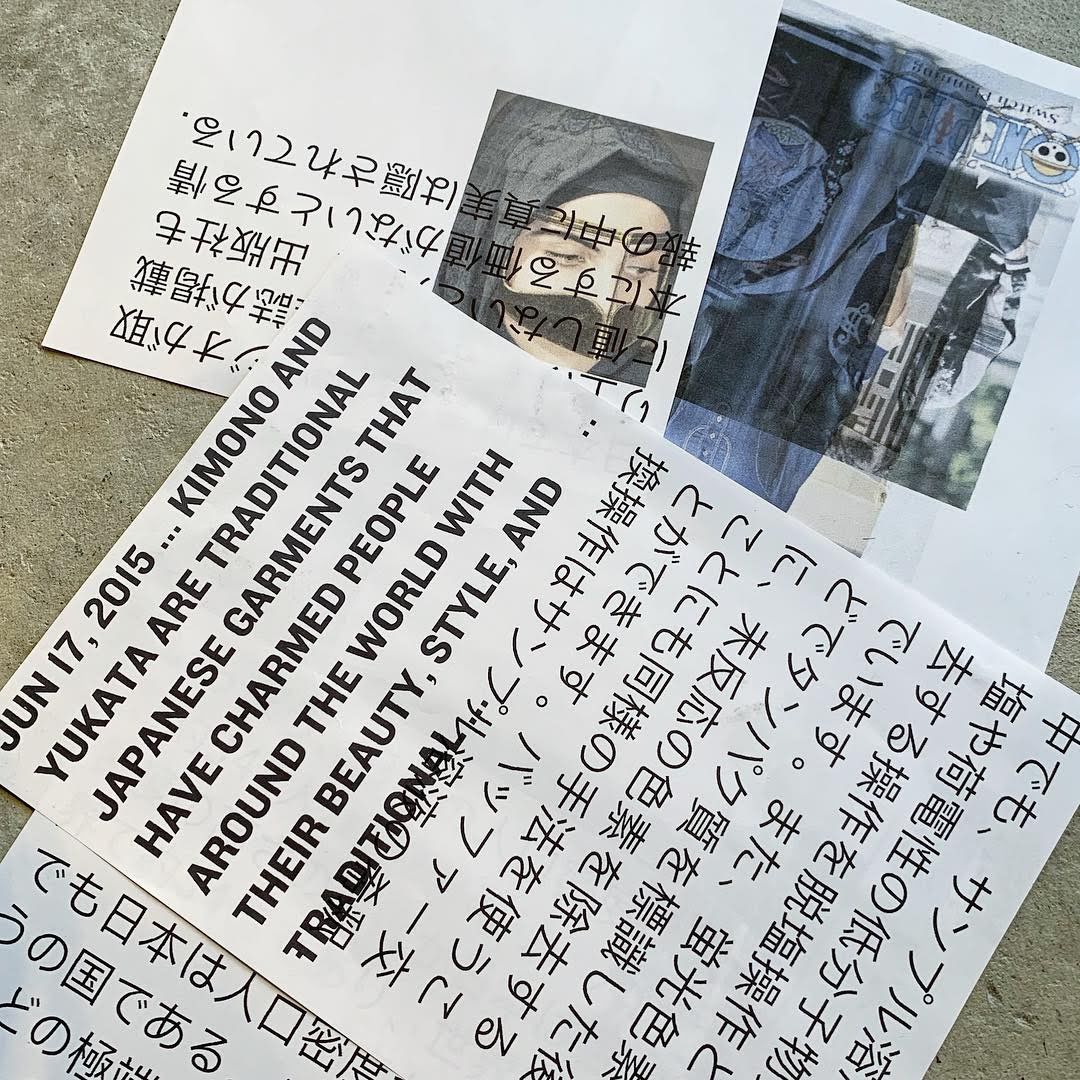 JUN 17, 2015 ... KIMONO AND
YUKATA ARE TRADITIONAL
JAPANESE GARMENTS THAT
HAVE CHARMED PEOPLE
AROUND THE WORLD WITH
THEIR BEAUTY, STYLE, AND
TRADITIONAL
中でも、サンプル溶
塩や荷電性の低分子物
去する操作を脱塩操作と
でいます。また、蛍光色素
どでタンパク質を標識した後
に、未反応の色素を除去する
ことにも同様の手法を使うこ
とができます。バッファー交
換操作はサンプル溶液の溶
ジオが取
誌が掲載
に値しない
出版社も
本にする価値がないとする情
報の中に真実は隠されている.
ONE PIECE
Switch Planning
でも日本は人口密度
うの国である
どの極端